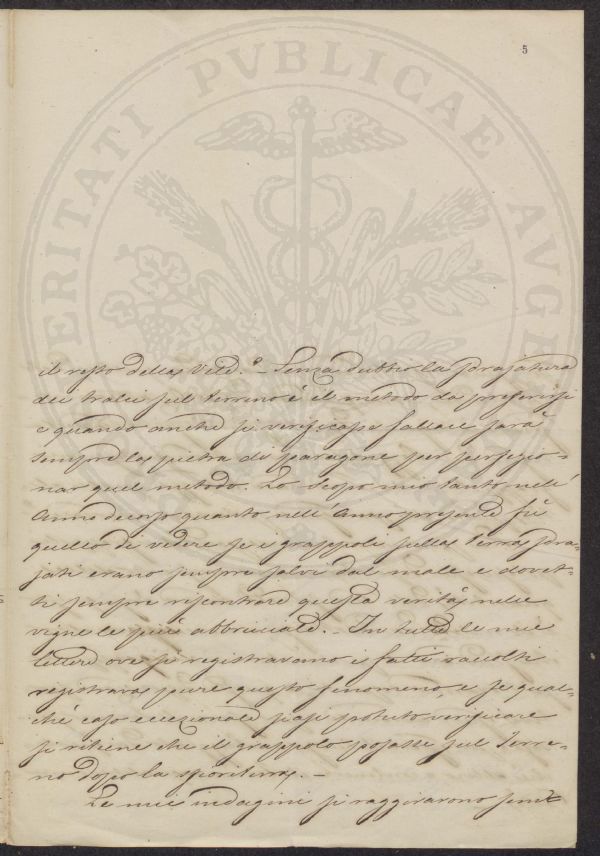 5
il resto della Vite. – Senza dubbio la sdrajatura
dei tralci sul terreno è il metodo da preferirsi
e quando anche si verificasse fallace sarà
sempre la pietra di paragone per perfezio-
nar quel metodo. Lo scopo mio tanto nell'
Anno decorso quanto nell'Anno presente fù
quello di vedere se i grappoli sulla terra sdra-
jati erano sempre salvi dal male e dovet-
ti sempre riscontrare questa verità nelle
vigne le più abbruciate. – In tutte le mie
lettere ove si registravano i fatti raccolti
registrava pure questo fenomeno, e se qual-
che caso eccezionale siasi potuto verificare
si ritiene che il grappolo posasse sul Terre-
no dopo la fioritura. –
Le mie indagini si raggirarono
VERITATI PVBLICAE AVGE